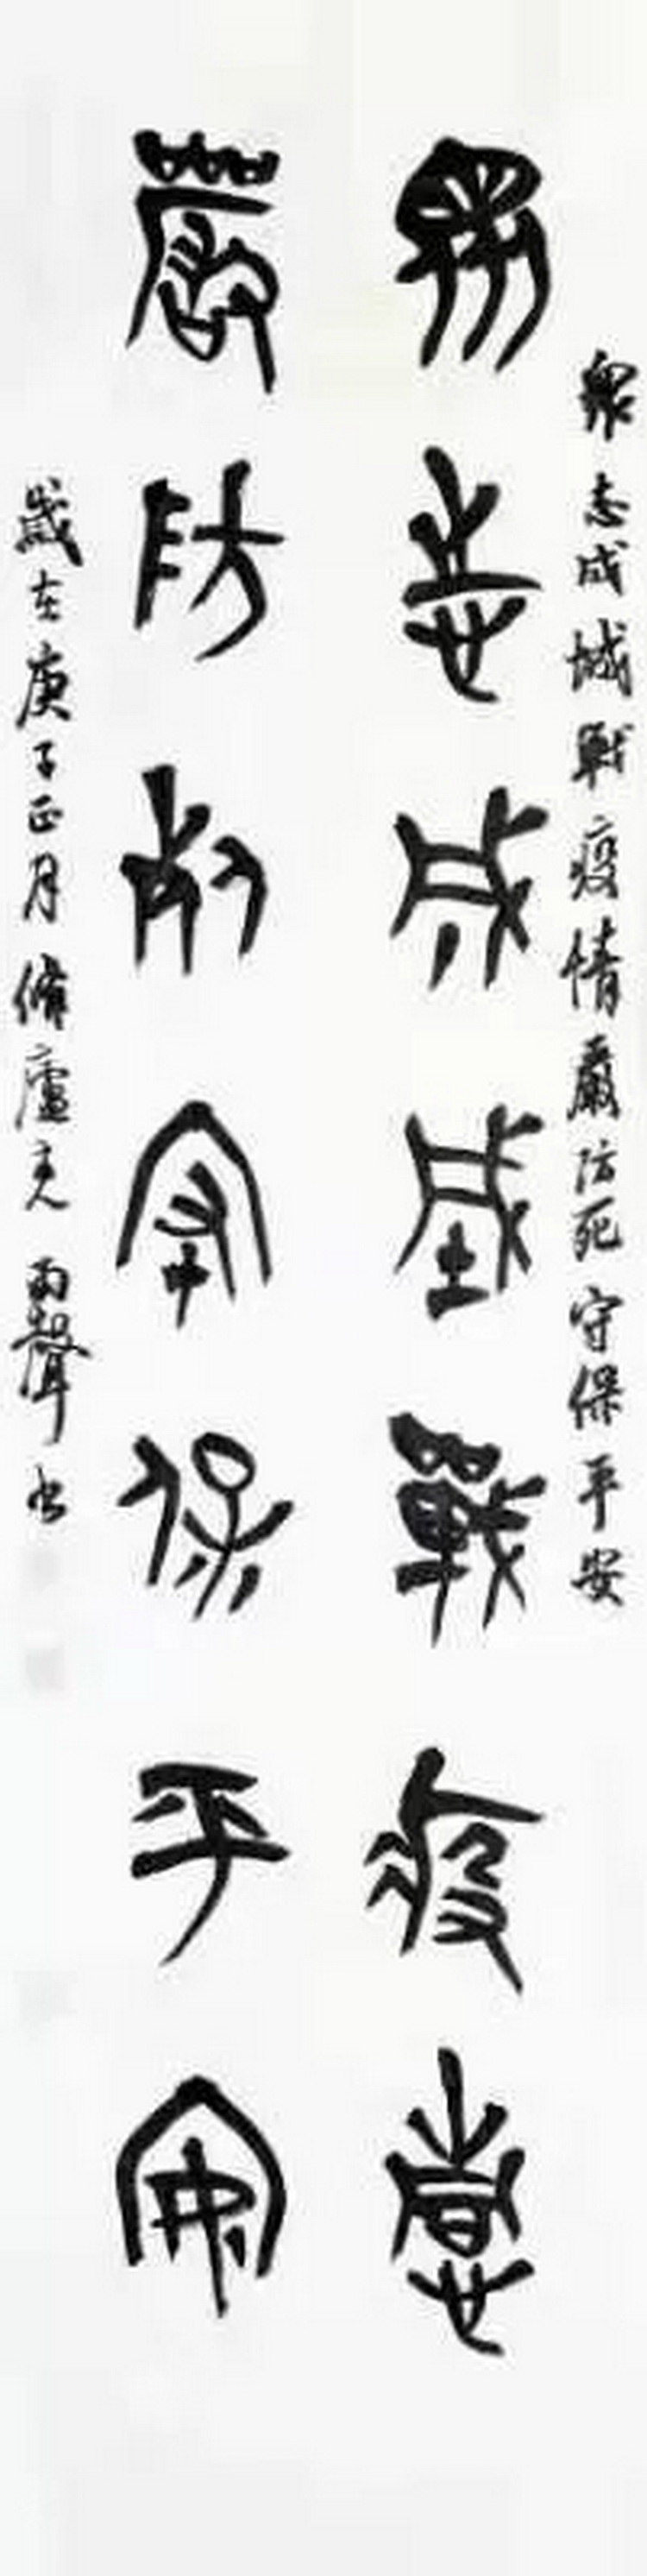 衆志成城戰疫情嚴防死守保平安
衆志成城戰疫情
嚴防死守保平安
歲在庚子正月脩廬主人雨聲書